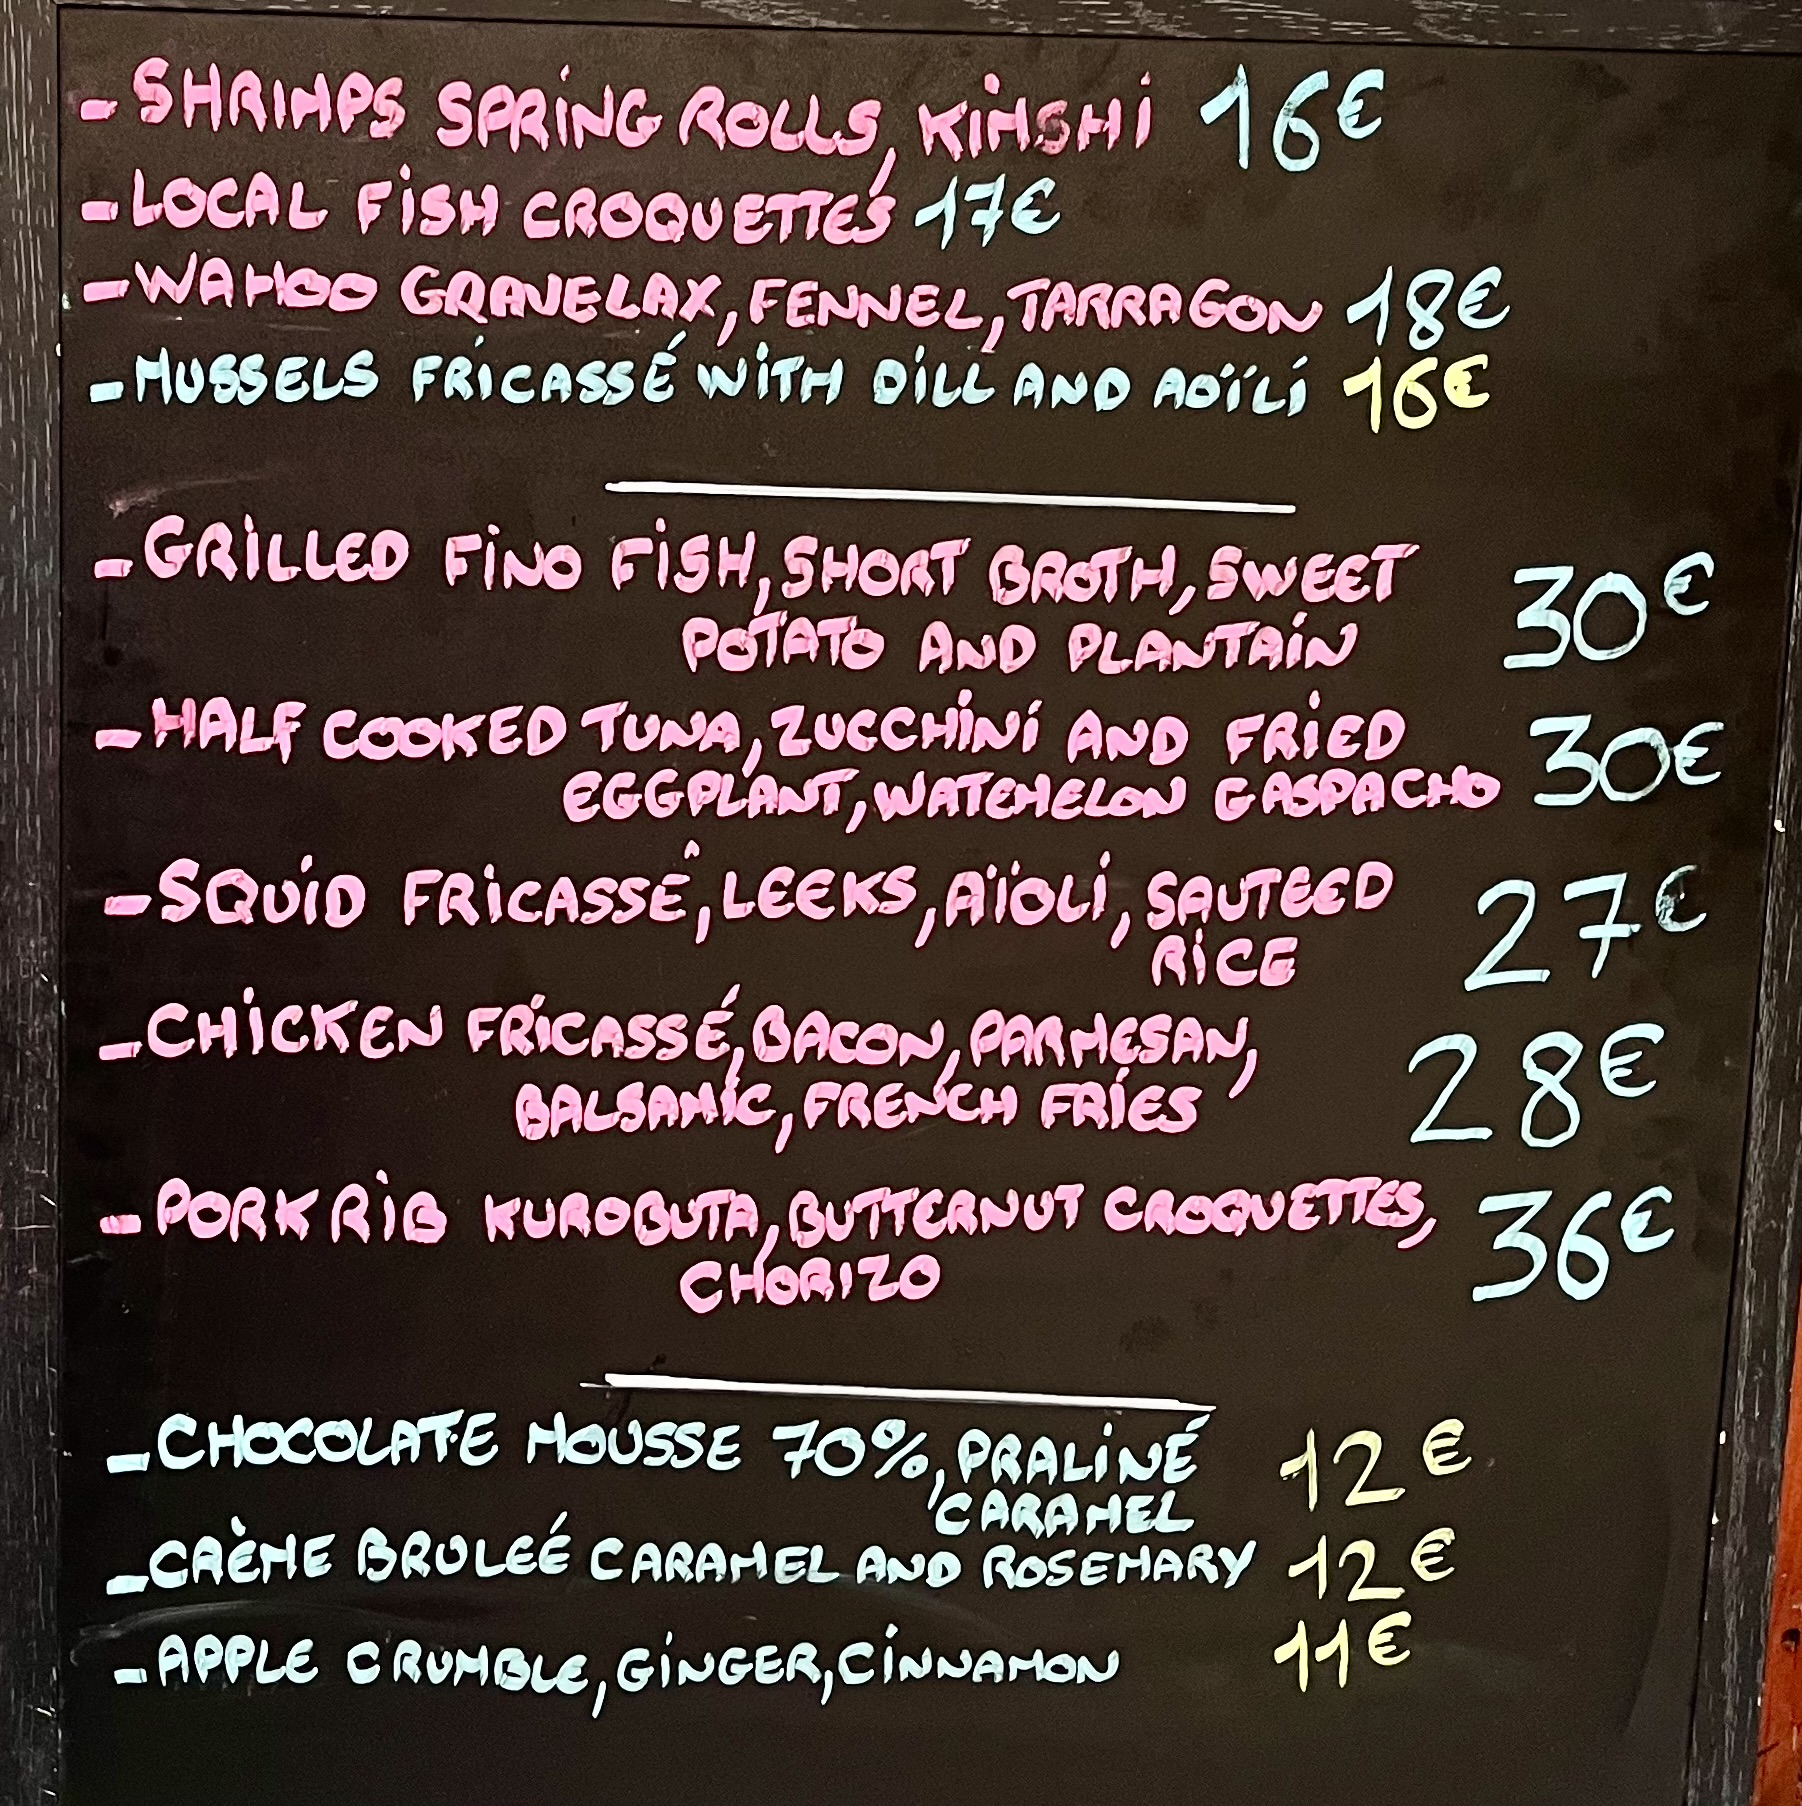 - SHRIMPS SPRING ROLLS, KIMSHI 16€
- LOCAL FISH CROQUETTES 17€
- WAHOO GRAVELAX, FENNEL, TARRAGON 18€
- MUSSELS FRICASSÉ WITH DILL AND AOÏLI 16€
- GRILLED FINO FISH, SHORT BROTH, SWEET
POTATO AND PLANTAIN 30€
- HALF COOKED TUNA, ZUCCHINI AND FRIED
EGGPLANT, WATEMELON GASPACHO 30€
- SQUID FRICASSÊ, LEEKS, AÏOLI, SAUTEED
RICE 27€
- CHICKEN FRICASSÉ, BACON, PARMESAN,
BALSAMIC, FRENCH FRIES 28€
- PORK RIB KUROBUTA, BUTTERNUT CROQUETTES,
CHORIZO 36€
- CHOCOLATE MOUSSE 70%, PRALINÉ 12€
CARAMEL
- CRÈME BRULEÉ CARAMEL AND ROSEMARY 12€
- APPLE CRUMBLE, GINGER, CINNAMON 11€